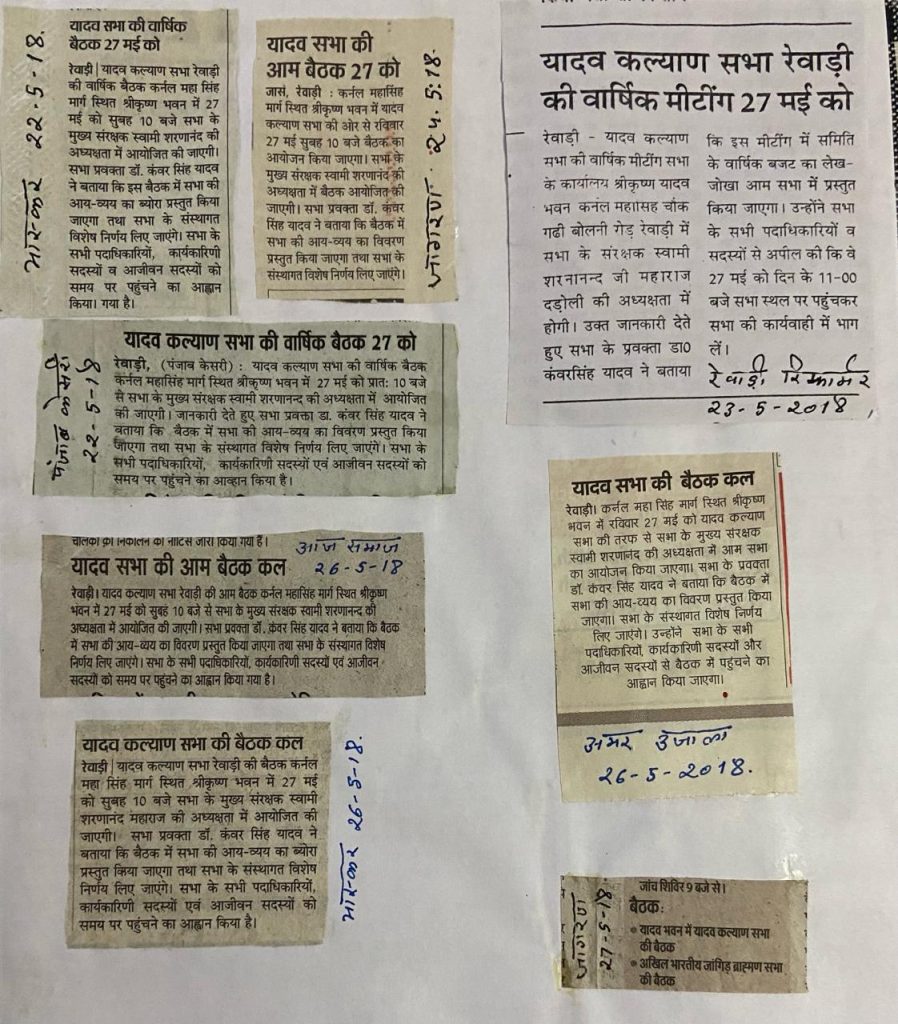 यादव सभा की वार्षिक
बैठक 27 मई को
रेवाड़ी | यादव कल्याण सभा रेवाड़ी
की वार्षिक बैठक कर्नल महा सिंह
मार्ग स्थित श्रीकृष्ण भवन में 27
मई को सुबह 10 बजे सभा के
मुख्य संरक्षक स्वामी शरणानंद की
अध्यक्षता में आयोजित की जाएगी।
सभा प्रवक्ता डॉ. कंवर सिंह यादव
ने बताया कि इस बैठक में सभा की
आय-व्यय का ब्योरा प्रस्तुत किया
जाएगा तथा सभा के संस्थागत
विशेष निर्णय लिए जाएंगे। सभा के
सभी पदाधिकारियों, कार्यकारिणी
सदस्यों व आजीवन सदस्यों को
समय पर पहुंचने का आह्वान
किया। गया है।
भास्कर 22-5-18.
यादव सभा की
आम बैठक 27 को
जासं, रेवाड़ी : कर्नल महासिंह
मार्ग स्थित श्रीकृष्ण भवन में यादव
कल्याण सभा की ओर से रविवार
27 मई सुबह 10 बजे बैठक का
आयोजन किया जाएगा। सभा के
मुख्य संरक्षक स्वामी शरणानंद की
अध्यक्षता में बैठक आयोजित की
जाएगी। सभा प्रवक्ता डॉ. कंवर
सिंह यादव ने बताया कि बैठक में
सभा की आय-व्यय का विवरण
प्रस्तुत किया जाएगा तथा सभा के
संस्थागत विशेष निर्णय लिए जाएंगे।
जागरण. 24.5.18.
यादव कल्याण सभा रेवाड़ी
की वार्षिक मीटींग 27 मई को
रेवाड़ी - यादव कल्याण
सभा की वार्षिक मीटिंग सभा
के कार्यालय श्रीकृष्ण यादव
भवन कर्नल महासिह चौक
गढी बोलनी रोड़ रेवाड़ी में
सभा के संरक्षक स्वामी
शरनानन्द जी महाराज
दड़ोली की अध्यक्षता में
होगी। उक्त जानकारी देते
हुए सभा के प्रवक्ता डा0
कंवरसिंह यादव ने बताया
कि इस मीटिंग में समिति
के वार्षिक बजट का लेख-
जोखा आम सभा में प्रस्तुत
किया जाएगा। उन्होंने सभा
के सभी पदाधिकारियों व
सदस्यों से अपील की कि वे
27 मई को दिन के 11-00
बजे सभा स्थल पर पहुंचकर
सभा की कार्यवाही में भाग
लें।
रेवाड़ी रिफार्मर
23-5-2018
यादव कल्याण सभा की वार्षिक बैठक 27 को
रेवाड़ी, (पंजाब केसरी) : यादव कल्याण सभा की वार्षिक बैठक
कर्नल महासिंह मार्ग स्थित श्रीकृष्ण भवन में 27 मई को प्रात: 10 बजे
से सभा के मुख्य संरक्षक स्वामी शरणानन्द की अध्यक्षता में आयोजित
की जाएगी। जानकारी देते हुए सभा प्रवक्ता डा. कंवर सिंह यादव ने
बताया कि बैठक में सभा की आय-व्यय का विवरण प्रस्तुत किया
जाएगा तथा सभा के संस्थागत विशेष निर्णय लिए जाएंगें। सभा के
सभी पदाधिकारियों, कार्यकारिणी सदस्यों एवं आजीवन सदस्यों को
समय पर पहुंचने का आव्हान किया है।
पंजाब केसरी
22-5-18
चालकों को निकालने का नोटिस जारी किया गया है।
यादव सभा की आम बैठक कल
आज समाज
26-5-18
रेवाड़ी। यादव कल्याण सभा रेवाड़ी की आम बैठक कर्नल महासिंह मार्ग स्थित श्रीकृष्ण
भवन में 27 मई को सुबह 10 बजे से सभा के मुख्य संरक्षक स्वामी शरणानन्द की
अध्यक्षता में आयोजित की जाएगी। सभा प्रवक्ता डॉ. कंवर सिंह यादव ने बताया कि बैठक
में सभा की आय-व्यय का विवरण प्रस्तुत किया जाएगा तथा सभा के संस्थागत विशेष
निर्णय लिए जाएंगे। सभा के सभी पदाधिकारियों, कार्यकारिणी सदस्यों एवं आजीवन
सदस्यों को समय पर पहुंचने का आह्वान किया गया है।
यादव सभा की बैठक कल
रेवाड़ी। कर्नल महा सिंह मार्ग स्थित श्रीकृष्ण
भवन में रविवार 27 मई को यादव कल्याण
सभा की तरफ से सभा के मुख्य संरक्षक
स्वामी शरणानंद की अध्यक्षता में आम सभा
का आयोजन किया जाएगा। सभा के प्रवक्ता
डॉ. कंवर सिंह यादव ने बताया कि बैठक में
सभा की आय-व्यय का विवरण प्रस्तुत किया
जाएगा। सभा के संस्थागत विशेष निर्णय
लिए जाएंगे। उन्होंने सभा के सभी
पदाधिकारियों, कार्यकारिणी सदस्यों और
आजीवन सदस्यों से बैठक में पहुंचने का
आह्वान किया जाएगा।
अमर उजाला
26-5-2018.
यादव कल्याण सभा की बैठक कल
रेवाड़ी | यादव कल्याण सभा रेवाड़ी की बैठक कर्नल
महा सिंह मार्ग स्थित श्रीकृष्ण भवन में 27 मई
को सुबह 10 बजे सभा के मुख्य संरक्षक स्वामी
शरणानंद महाराज की अध्यक्षता में आयोजित की
जाएगी। सभा प्रवक्ता डॉ. कंवर सिंह यादव ने
बताया कि बैठक में सभा की आय-व्यय का ब्योरा
प्रस्तुत किया जाएगा तथा सभा के संस्थागत विशेष
निर्णय लिए जाएंगे। सभा के सभी पदाधिकारियों,
कार्यकारिणी सदस्यों एवं आजीवन सदस्यों को
समय पर पहुंचने का आह्वान किया है।
भास्कर 26-5-18.
जांच शिविर 9 बजे से।
बैठक:
• यादव भवन में यादव कल्याण सभा
की बैठक
• अखिल भारतीय जांगिड़ ब्राह्मण सभा
की बैठक
जागरण
27-5-18.